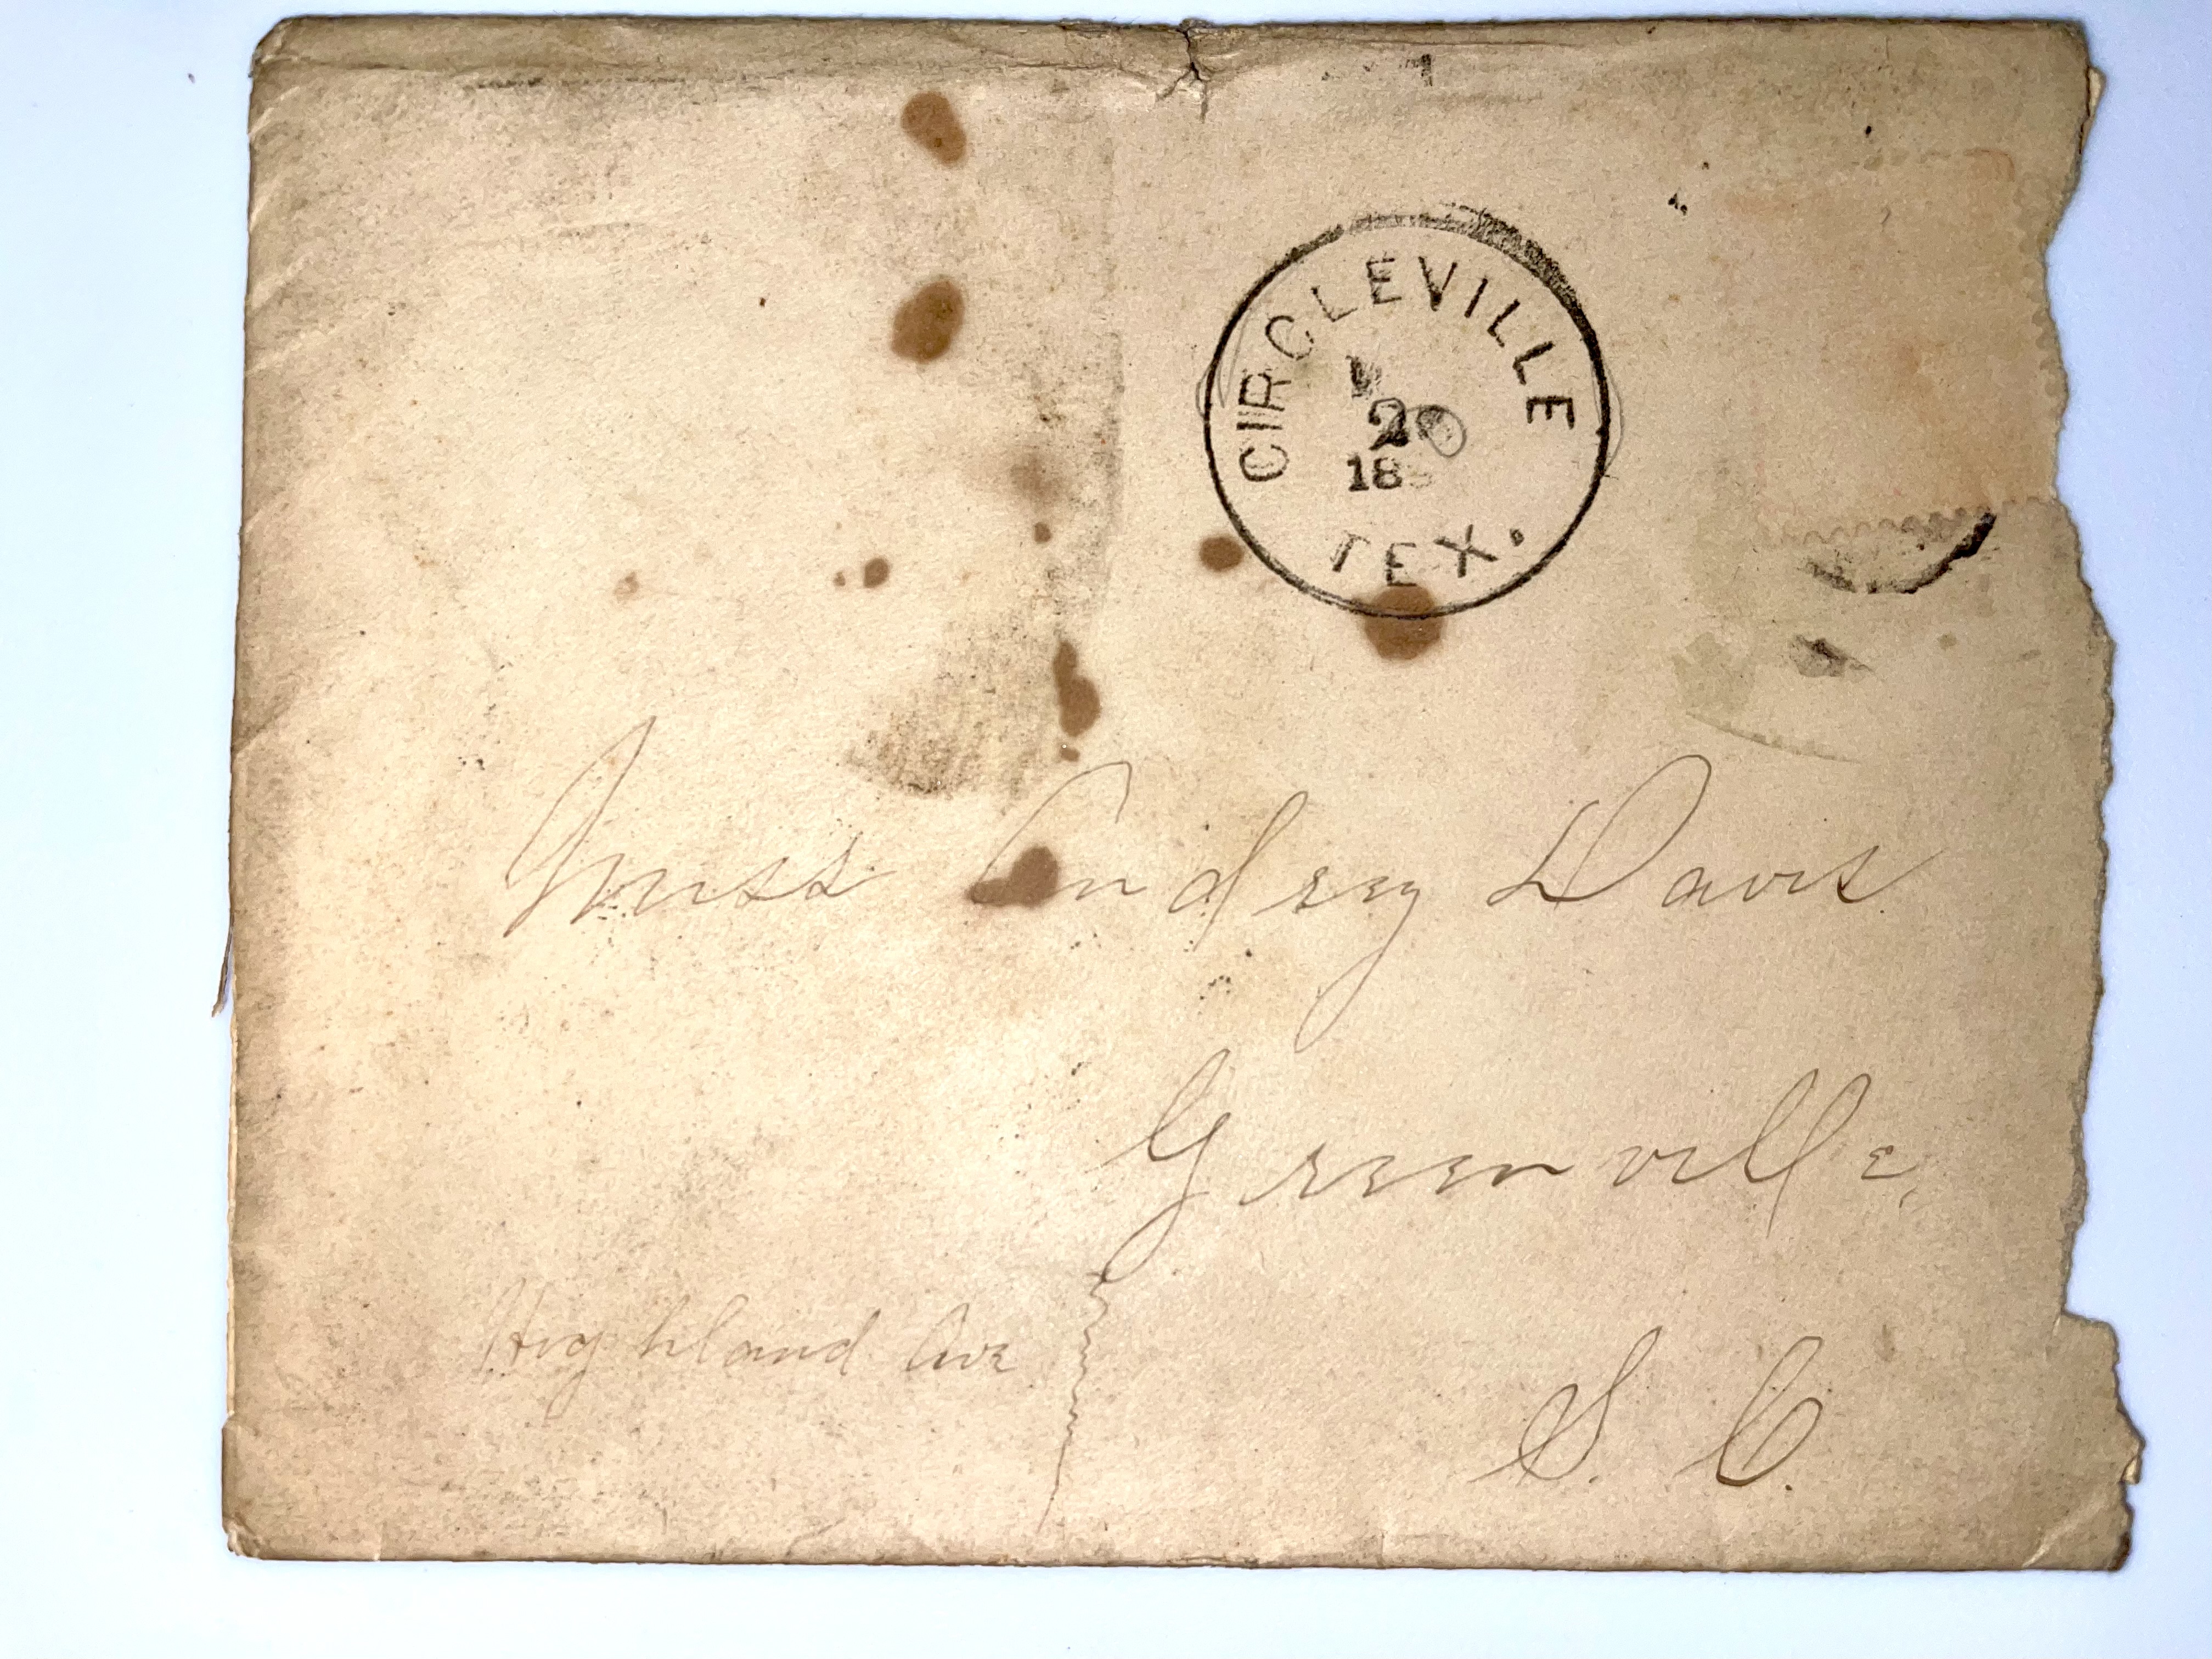 CIRCLEVILLE
20
18
TEX.
Miss Audrey Davis
Greenville,
Highland Ave
S. C.